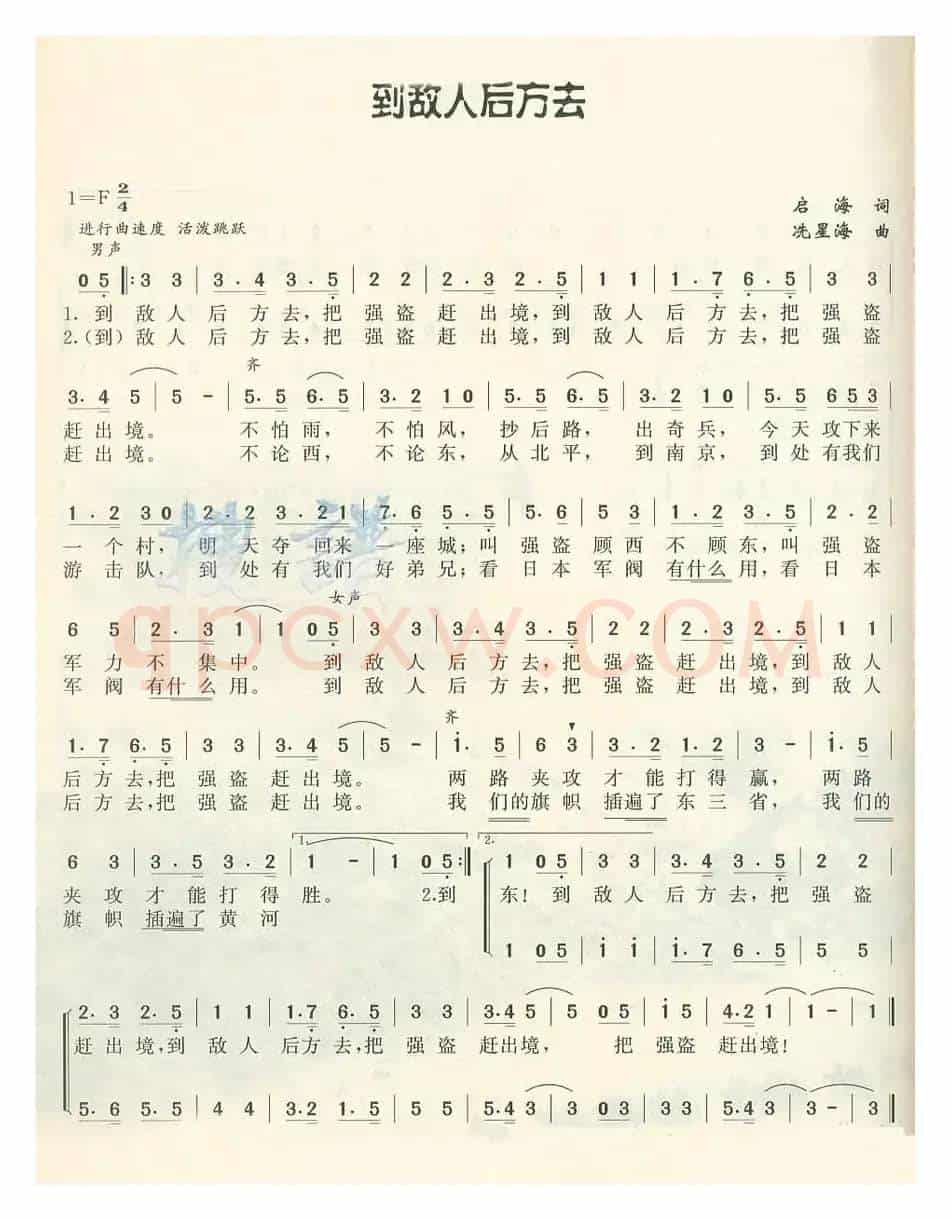 到敌人后方去
1=F 2/4
启 海 词
进行曲速度 活泼跳跃
冼星海 曲
男声
0 5 ‖: 3 3 | 3 . 4 3 . 5 | 2 2 | 2 . 3 2 . 5 | 1 1 | 1 . 7 6 . 5 | 3 3
1. 到 敌 人 后 方 去, 把 强 盗 赶 出 境, 到 敌 人 后 方 去, 把 强 盗
2.(到) 敌 人 后 方 去, 把 强 盗 赶 出 境, 到 敌 人 后 方 去, 把 强 盗
齐
3 . 4 5 | 5 - | 5 . 5 6 . 5 | 3 . 2 1 0 | 5 . 5 6 . 5 | 3 . 2 1 0 | 5 . 5 6 5 3
赶 出 境。 不 怕 雨, 不 怕 风, 抄 后 路, 出 奇 兵, 今 天 攻 下 来
赶 出 境。 不 论 西, 不 论 东, 从 北 平, 到 南 京, 到 处 有 我 们
1 . 2 3 0 | 2 . 2 3 . 2 1 | 7 . 6 5 . 5 | 5 . 6 5 3 | 1 . 2 3 . 5 | 2 . 2
一 个 村, 明 天 夺 回 来 一 座 城; 叫 强 盗 顾 西 不 顾 东, 叫 强 盗
游 击 队, 到 处 有 我 们 好 弟 兄; 看 日 本 军 阀 有 什 么 用, 看 日 本
女声
6 5 | 2 . 3 1 | 1 0 5 | 3 3 | 3 . 4 3 . 5 | 2 2 | 2 . 3 2 . 5 | 1 1
军 力 不 集 中。 到 敌 人 后 方 去, 把 强 盗 赶 出 境, 到 敌 人
军 阀 有 什 么 用。 到 敌 人 后 方 去, 把 强 盗 赶 出 境, 到 敌 人
齐
1 . 7 6 . 5 | 3 3 | 3 . 4 5 | 5 - | 1 . 5 | 6 3 | 3 . 2 1 . 2 | 3 - | 1 . 5
后 方 去, 把 强 盗 赶 出 境。 两 路 夹 攻 才 能 打 得 赢, 两 路
后 方 去, 把 强 盗 赶 出 境。 我 们 的 旗 帜 插 遍 了 东 三 省, 我 们 的
1. 2.
6 3 | 3 . 5 3 . 2 | 1 - | 1 0 5 :‖ 1 0 5 | 3 3 | 3 . 4 3 . 5 | 2 2
夹 攻 才 能 打 得 胜。 2.到 东! 到 敌 人 后 方 去, 把 强 盗
旗 帜 插 遍 了 黄 河
1 0 5 | 1 1 | 1 . 7 6 . 5 | 5 5
2 . 3 2 . 5 | 1 1 | 1 . 7 6 . 5 | 3 3 | 3 . 4 5 | 5 0 5 | 1 5 | 4 . 2 1 | 1 - | 1 ‖
赶 出 境, 到 敌 人 后 方 去, 把 强 盗 赶 出 境, 把 强 盗 赶 出 境!
5 . 6 5 . 5 | 4 4 | 3 . 2 1 . 5 | 5 5 | 5 . 4 3 | 3 0 3 | 3 3 | 5 . 4 3 | 3 - | 3 ‖
qpcxw.COM